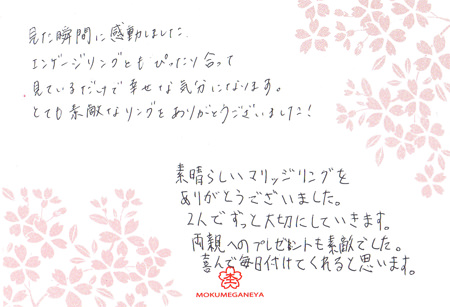 見た瞬間に感動しました。
エンゲージリングともぴったり合って
見ているだけで幸せな気分になります。
とても素敵なリングをありがとうございました！
素晴らしいマリッジリングを
ありがとうございました。
2人でずっと大切にしていきます。
両親へのプレゼントも素敵でした。
喜んで毎日付けてくれると思います。
MOKUMEGANEYA